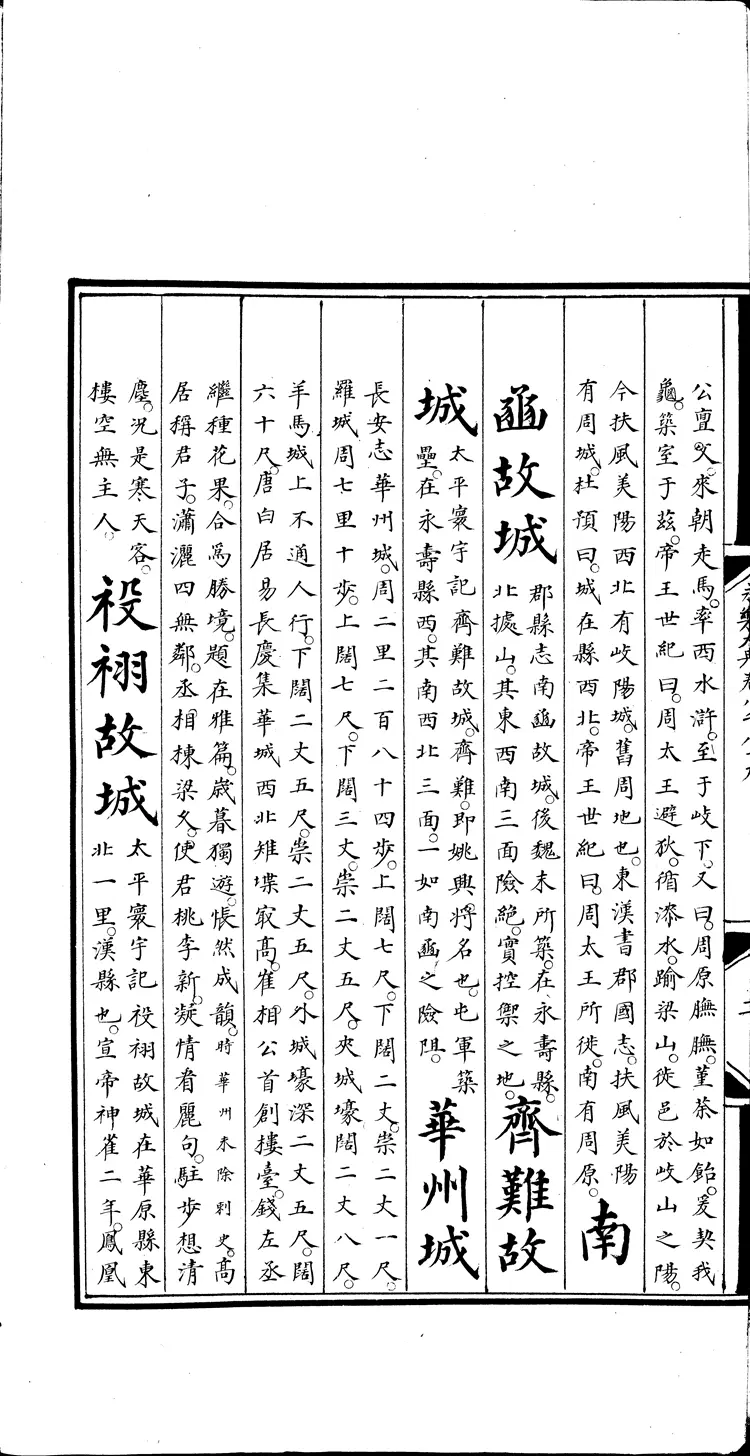 公亶父。來朝走馬。率西水滸。至于岐下。又曰。周原膴膴。堇荼如飴。爰契我
龜。築室于茲。帝王世紀曰。周太王避狄。循漆水。踰梁山。徙邑於岐山之陽。
今扶風美陽西北有岐陽城。舊周地也。東漢書郡國志。扶風美陽
有周城。杜預曰。城在縣西北。帝王世紀曰。周太王所徙。南有周原。
南
豳故城
郡縣志南豳故城。後魏末所築。在永壽縣
北據山。其東西南三面險絕。實控禦之地。
齊難故
城
太平寰宇記齊難故城。齊難。即姚興將名也。屯軍築
壘。在永壽縣西。其南西北三面。一如南豳之險阻。
華州城
長安志華州城。周二里二百八十四步。上闊七尺。下闊二丈。崇二丈一尺。
羅城周七里十步。上闊七尺。下闊三丈。崇二丈五尺。夾城壕闊二丈八尺。
羊馬城上不通人行。下闊二丈五尺。崇二丈五尺。外城壕深二丈五尺。闊
六十尺。唐白居易長慶集華城西北雉堞㝡高。崔相公首創樓臺。錢左丞
繼種花果。合爲勝境。題在雅篇。歲暮獨遊。悵然成韻。時華州未除刺史。高
居稱君子。瀟灑四無鄰。丞相棟梁久。使君桃李新。凝情看麗句。駐步想清
塵。況是寒天客。
樓空無主人。
祋祤故城
太平寰宇記祋祤故城在華原縣東
北一里。漢縣也。宣帝神雀二年。鳳凰